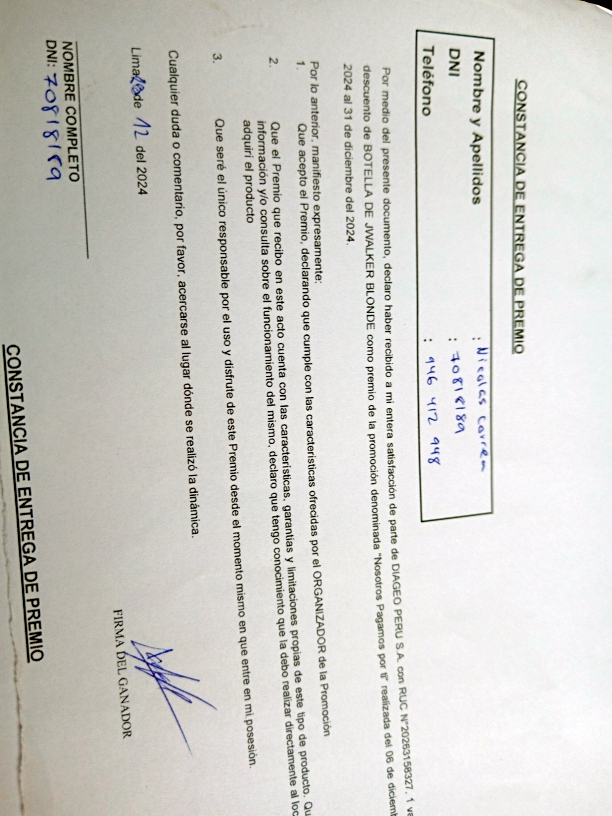 CONSTANCIA DE ENTREGA DE PREMIO
Nombre y Apellidos : Nicolas Carren
DNI : 70818189
Teléfono : 946 412 948
Por medio del presente documento, declaro haber recibido a mi entera satisfacción de parte de DIAGEO PERU S.A. con RUC N°20263158327. 1
descuento de BOTELLA DE JWALKER BLONDE como premio de la promoción denominada "Nosotros Pagamos por ti" realizada del 06 de
2024 al 31 de diciembre del 2024.
Por lo anterior, manifiesto expresamente:
1. Que acepto el Premio, declarando que cumple con las características ofrecidas por el ORGANIZADOR de la Promoción
2. Que el Premio que recibo en este acto cuenta con las características, garantías y limitaciones propias de este tipo de producto.
información y/o consulta sobre el funcionamiento del mismo, declaro que tengo conocimiento que la debo realizar directamente al
adquirí el producto
3. Que seré el único responsable por el uso y disfrute de este Premio desde el momento mismo en que entre en mi posesión.
Cualquier duda o comentario, por favor, acercarse al lugar dónde se realizó la dinámica.
Lima de 12 del 2024
FIRMA DEL GANADOR
NOMBRE COMPLETO
DNI: 70818189
CONSTANCIA DE ENTREGA DE PREMIO